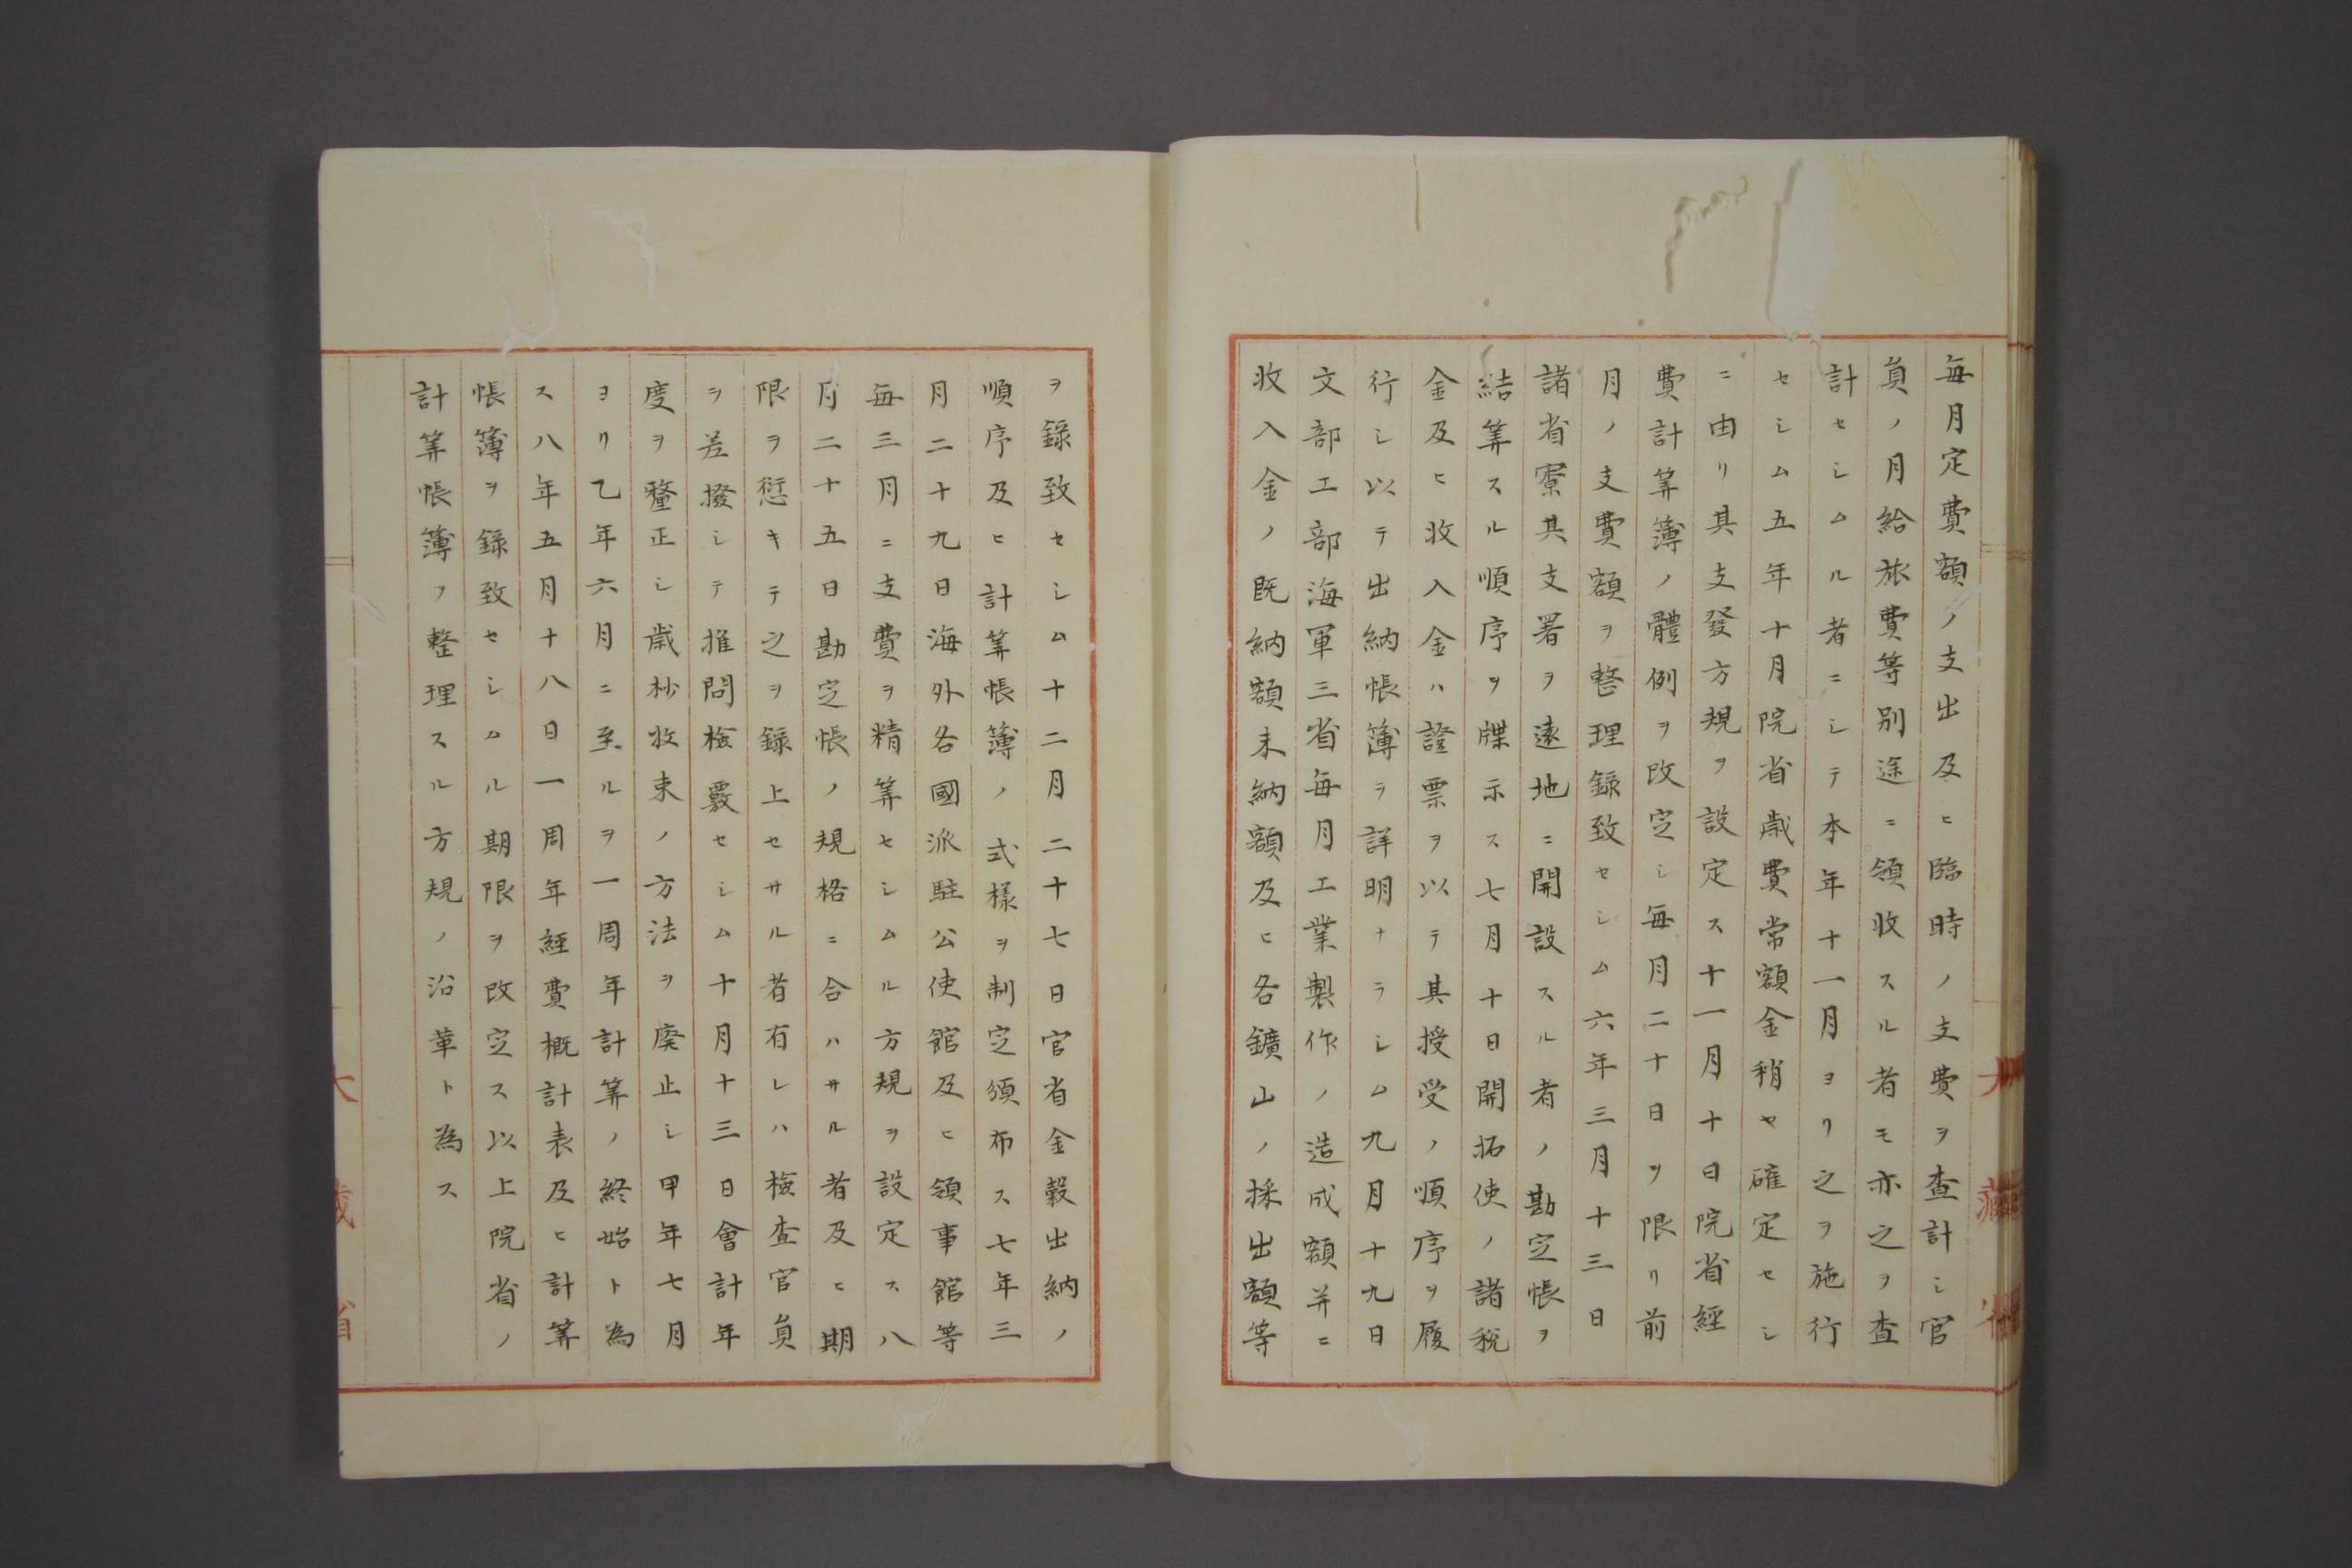 毎月定費額ノ支出及ヒ臨時ノ支費ヲ査計シ官
負ノ月給旅費等別途ニ領收スル者モ亦之ヲ査
計セシムル者ニシテ本年十一月ヨリ之ヲ施行
セシム五年十月院省歳費常額金稍ヤ確定セシ
ニ由リ其支發方規ヲ設定ス十一月十日院省經
費計筭簿ノ體例ヲ改定シ毎月二十日ヲ限リ前
月ノ支費額ヲ整理録致セシム六年三月十三日
諸省寮其支署ヲ遠地ニ開設スル者ノ勘定帳ヲ
結筭スル順序ヲ牒示ス七月十日開拓使ノ諸税
金及ヒ收入金ハ證票ヲ以テ其授受ノ順序ヲ履
行シ以テ出納帳簿ヲ詳明ナラシム九月十九日
文部工部海軍三省毎月工業製作ノ造成額并ニ
收入金ノ既納額未納額及ヒ各鑛山ノ採出額等
ヲ錄致セシム十二月二十七日官省金穀出納ノ
順序及ヒ計筭帳簿ノ式樣ヲ制定頒布ス七年三
月二十九日海外各國派駐公使館及ヒ領事館等
毎三月ニ支費ヲ精筭セシムル方規ヲ設定ス八
月二十五日勘定帳ノ規格ニ合ハサル者及ヒ期
限ヲ愆キテ之ヲ録上セサル者有レハ檢査官負
ヲ差撥シテ推問檢覈セシム十月十三日會計年
度ヲ釐正シ歳杪收束ノ方法ヲ廃止シ甲年七月
ヨリ乙年六月ニ至ルヲ一周年計筭ノ終始ト為
ス八年五月十八日一周年經費概計表及ヒ計筭
帳簿ヲ錄致セシムル期限ヲ改定ス以上院省ノ
計筭帳簿ヲ整理スル方規ノ沿革ト為ス
大藏省